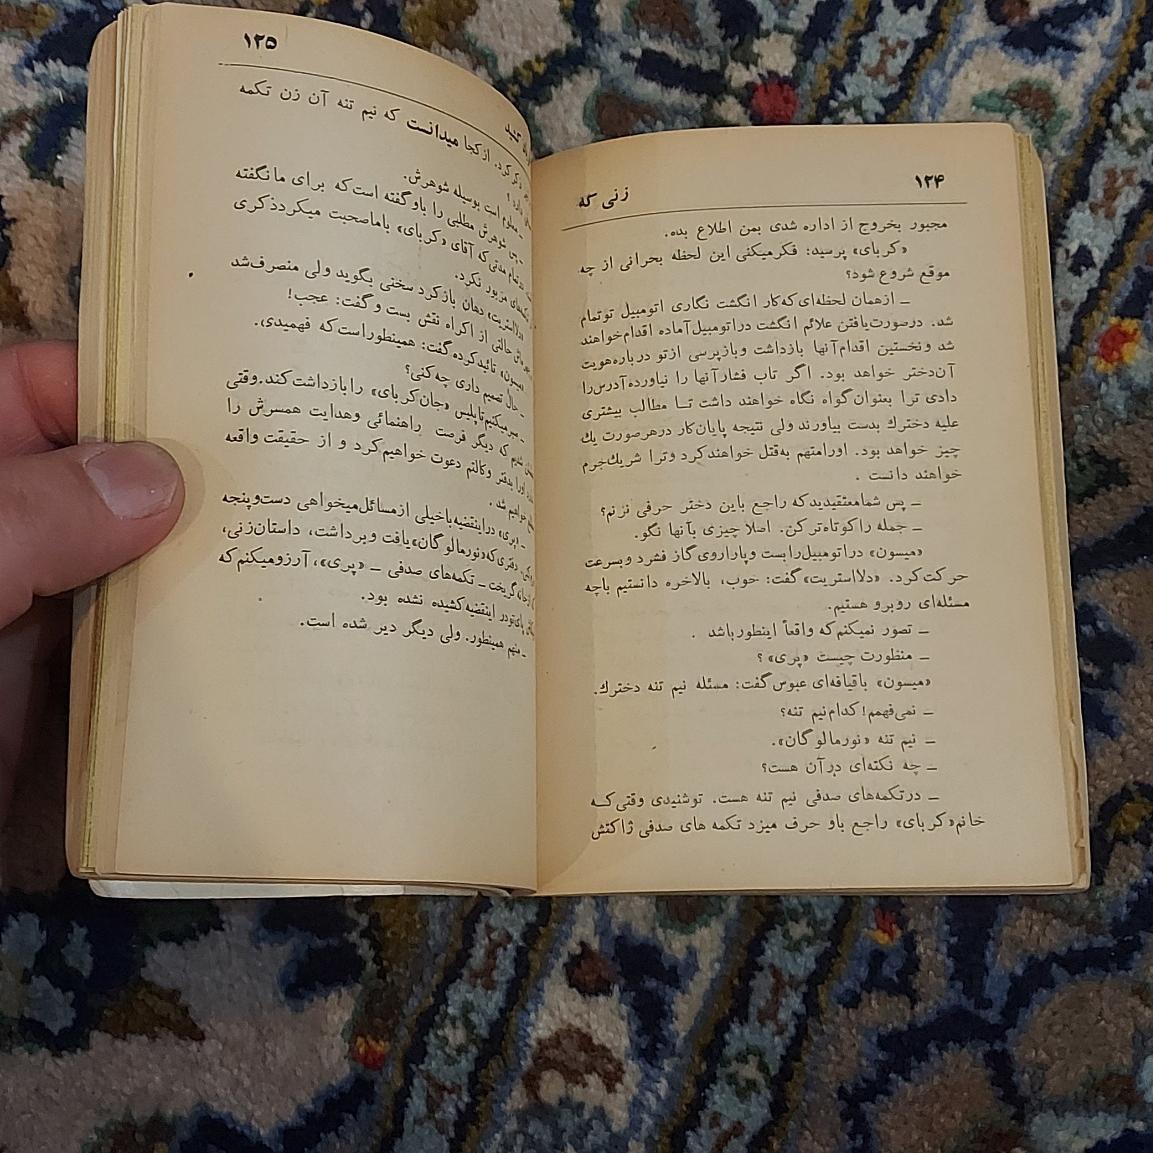 ۱۲۴
زنی که
مجبور بخروج از اداره شدی بمن اطلاع بده.
«کربای» پرسید: فکرمیکنی این لحظه بحرانی از چه
موقع شروع شود؟
ـ ازهمان لحظه‌ای‌که‌کار انگشت نگاری اتومبیل توتمام
شد. درصورت‌یافتن علائم انگشت دراتومبیل‌آماده اقدام‌خواهند
شد ونخستین اقدام‌آنها بازداشت وبازپرسی ازتو درباره‌هویت
آن‌دختر خواهد بود. اگر تاب فشارآنها را نیاورده‌آدرس‌را
دادی ترا بعنوان‌گواه نگاه خواهند داشت تــا مطالب بیشتری
علیه دخترك بدست بیاورند ولی نتیجه پایان‌کار درهرصورت یك
چیز خواهد بود. اورامتهم به‌قتل خواهندکرد وترا شریك‌جرم
خواهند دانست .
ـ پس شمامعتقیدیدکه راجع باین دختر حرفی نزنم؟
ـ جمله راکوتاه‌ترکن. اصلا چیزی بآنها نگو.
«میسون» دراتومبیل‌رابست وپاراروی گاز فشرد وبسرعت
حرکت‌کرد. «دلااستریت» گفت: خوب، بالاخره دانستیم باچه
مسئله‌ای روبرو هستیم.
ـ تصور نمیکنم‌که واقعاً اینطورباشد .
ـ منظورت چیست «پری» ؟
«میسون» باقیافه‌ای عبوس‌گفت: مسئله نیم تنه دخترك.
ـ نمی‌فهمم! کدام‌نیم تنه؟
ـ نیم تنه «نورمالوگان».
ـ چه نکته‌ای درآن هست؟
ـ درتکمه‌های صدفی نیم تنه هست. توشنیدی وقتی‌کــه
خانم«کربای» راجع باو حرف میزد تکمه های صدفی ژاکتش
۱۲۵
کشید
ذکرکرد. ازکجا میدانست که نیم تنه آن زن تکمه
دارد!
ـ معلوم است بوسیله شوهرش.
ـ پس شوهرش مطلبی را باوگفته است‌که برای ما نگفته
تمام مدتی‌که آقای «کربای» باماصحبت میکردذکری
مزبور نکرد.
«دلااستریت» دهان بازکرد سخنی بگوید ولی منصرف‌شد
حالتی از اکراه نقش بست وگفت: عجب!
«میسون» تأئیدکرده‌گفت: همینطوراست‌که فهمیدی.
ـ حال تصمیم داری چه‌کنی؟
ـ صبرمیکنم‌تاپلیس «جان‌کربای» رابازداشت‌کند.وقتی
شدیم که دیگر فرصت راهنمائی وهدایت همسرش را
اورا بدفتر وکالتم دعوت خواهیم‌کرد و از حقیقت واقعه
خواهیم شد.
ـ «پری» دراینقضیه‌باخیلی ازمسائل‌میخواهی دست‌وپنجه
دفتری‌که«نورمالوگان»یافت وبرداشت، داستان‌زنی،
گریخت ـ تکمه‌های صدفی ـ «پری»، آرزومیکنم‌که
پای‌تودر اینقضیه‌کشیده نشده بود.
ـ منهم همینطور. ولی دیگر دیر شده است.